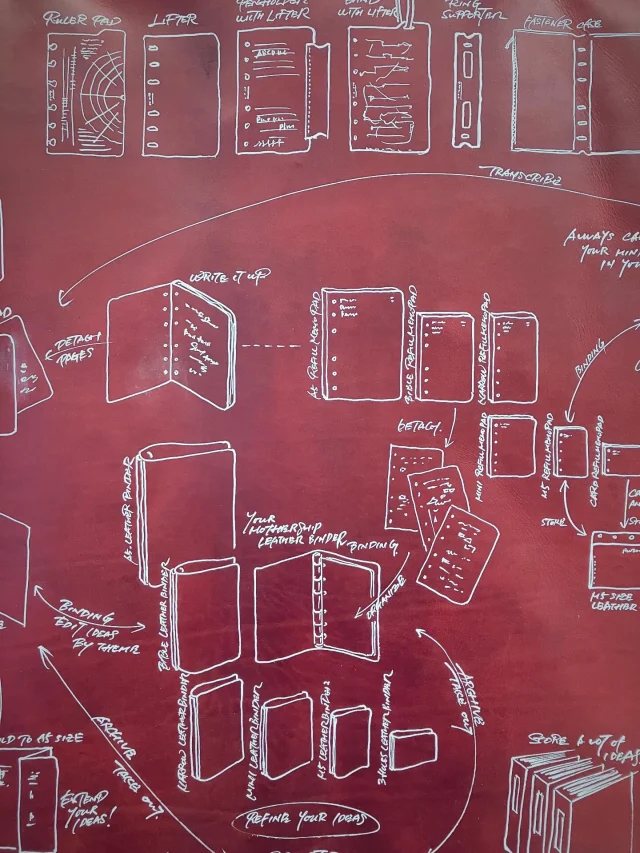 RULER PAD
LIFTER
PENHOLDER
WITH LIFTER
WITH LIFTER
RING
SUPPORTER
FASTENER CASE
TRANSCRIBE
ALWAYS
YOUR MINI
IN YOU
WRITE IT UP
DETACH
PAGES
A5 REFILL MEMO PAD
BIBLE REFILL MEMO PAD
NARROW REFILL MEMO PAD
BINDING
DETACH
MINI REFILL MEMO PAD
M5 REFILL MEMO PAD
CARD REFILL MEMO PAD
STORE
M5 SIZE
LEATHER
A5 LEATHER BINDER
YOUR
MOTHERSHIP
LEATHER BINDER
BINDING
ORGANIZE
BIBLE LEATHER BINDER
BINDING
EDIT IDEAS
BY THEME
ARRANGE
TAKE OUT
NARROW LEATHER BINDER
MINI LEATHER BINDER
M5 LEATHER BINDER
3 HOLES LEATHER BINDER
ARCHIVE
TAKE OUT
LD TO A5 SIZE
EXTEND
YOUR
IDEAS!
STORE A LOT OF
IDEAS
REFINE YOUR IDEAS